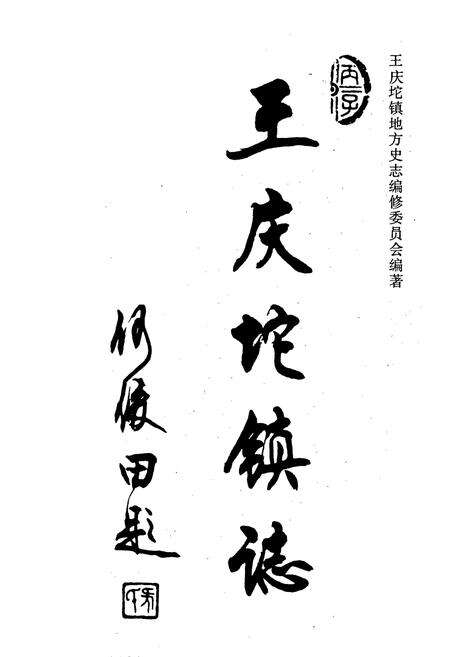 王庆坨镇地方史志编修委员会编著
王庆坨镇誌
何俊田题